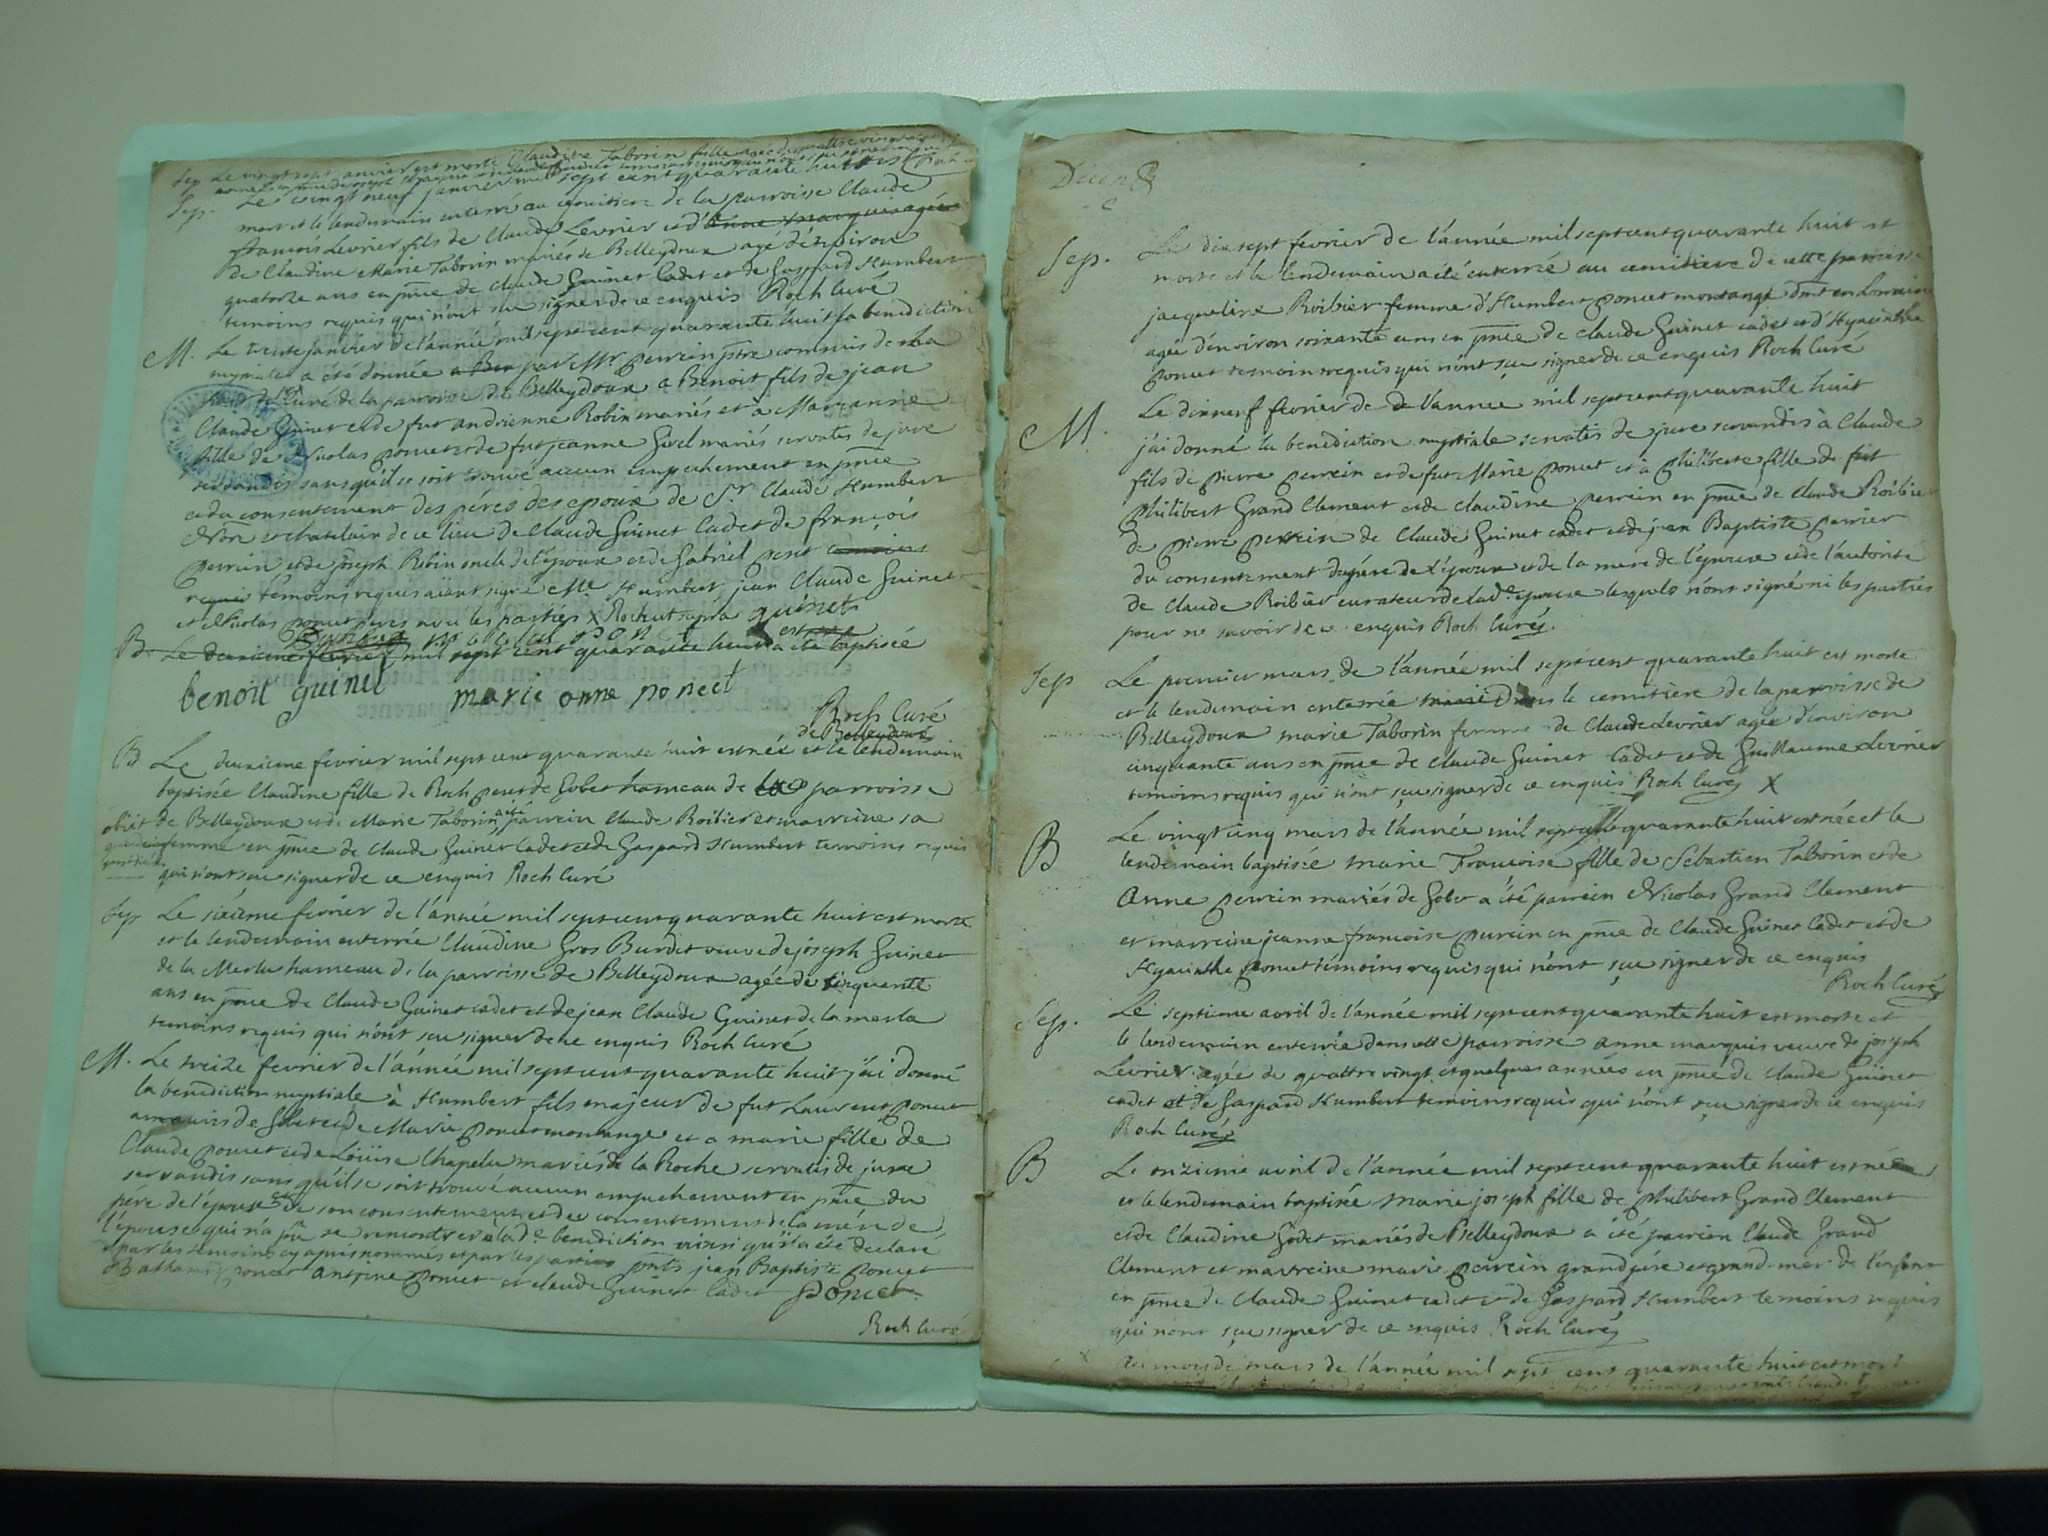 Sep Le vingt sept janvier est morte Claudine Taborin fille agée de quattre vingt
Sep. Le vingt neuf janvier mil sept cent quarante huit est
mort et le lendemain enterré au cemitiere de la parroisse Claude
francois Levrier fils de Claude Levrier et d'anne marquis agée
de Claudine Marie Taborin mariés de Belleydoux agé d'environ
quatorze ans en pnce de claude Guinet Cadet et de Gaspard Humbert
temoins requis qui n'ont sçu signer de ce enquis Roch Curé
M. Le trente janvier de l'année mil sept cent quarante huit la benediction
nuptiale a été donnée par Mr. perrein ptre commis de la
part de Curé de la parroisse de Belleydoux a Benoit fils de jean
Claude Guinet et de fut andrienne Robin mariés et à Marianne
fille de Nicolas poncet et de fut jeanne Gurel mariés servatis de jure
servandis sans qu'il se soit trouvé aucun empechement en pnce
et du consentement des péres des epoux de Sr. Claude Humbert
Nre et chatelain de ce lieu de Claude Guinet Cadet de françois
perrein et de joseph Robin oncle de l'epoux et de Gabriel perit temoins
requis temoins requis aiant signé Mr Humbert jean Claude Guinet
et Nicolas poncet peres avec les parties X Roch ut supra guinet
B. Le deuxieme fevrier mil sept cent quarante huit est née a été baptisée
benoit guinet marie anne poncet
Roch Curé
de Belleydoux
B Le deuxieme fevrier mil sept cent quarante huit est née et le lendemain
baptisée Claudine fille de Roch perret de Gobet hameau de la parroisse
obiit de Belleydoux et de Marie Taborin a été parrein Claude Roibier et marreine sa
femme en pnce de Claude Guinet Cadet et de Gaspard Humbert temoins requis
qui n'ont sçu signer de ce enquis Roch Curé
Sep Le sixieme fevrier de l'année mil sept cent quarante huit est morte
et le lendemain enterrée Claudine Gros Burdet veuve de joseph Guinet
de la Merla hameau de la parroisse de Belleydoux agée de cinquante
ans en pnce de Claude Guinet cadet et de jean Claude Guinet de la merla
temoins requis qui n'ont sçu signer de ce enquis Roch Curé
M. Le treize fevrier de l'année mil sept cent quarante huit j'ai donné
la benediction nuptiale à Humbert fils majeur de fut Laurent poncet
et de Marie poncet montange et a marie fille de
Claude poncet et de Loüise Chapelu mariés de la Roche servatis de jure
servandis sans qu'il se soit trouvé aucun empechement en pnce du
pere de l'epouse et de son consentement et de consentement de la mére de
l'epouse qui n'a pû se rencontrer a la de. benediction ainsi qu'il a été declaré
par les temoins cy aprés nommés et par les parties pnts jean Baptiste poncet
poncet antoine poncet et claude Guinet Cadet poncet
Roch Curé
Sep. Le dix sept fevrier de l'année mil sept cent quarante huit est
morte et le lendemain a été enterrée au cemitiere de cette parroisse
jacqueline Roibier femme d'Humbert poncet montange dmt en Lorraine
agée d'environ soixante ans en pnce de claude Guinet cadet et d'Hyacinthe
poncet temoins requis qui n'ont sçu signer de ce enquis Roch Curé
M. Le dixneuf fevrier de de l'année mil sept cent quarante huit
j'ai donné la benediction nuptiale servatis de jure servandis à Claude
fils de pierre perrein et de fut Marie poncet et à philiberte fille de fut
philibert Grand Clement et de claudine perrein en pnce de claude Roibier
de pierre perrein de Claude Guinet cadet et de jean Baptiste perrier
du consentement du pére de l'epoux et de la mere de l'epouse et de l'autorité
de Claude Roibier curateur de lad.e epouse lesquels n'ont signé ni les parties
pour ne savoir de ce enquis Roch Curé.
Sep Le premier mars de l'année mil sept cent quarante huit est morte
et le lendemain enterrée dans le cemitiere de la parroisse de
Belleydoux marie Taborin femme de Claude Levrier agée d'environ
cinquante ans en pnce de claude Guinet Cadet et de Guillaume Levrier
temoins requis qui n'ont sçu signer de ce enquis Roch Curé X
B Le vingt cinq mars de l'année mil sept cent quarante huit est née et le
lendemain baptisée marie Francoise fille de Sebastien Taborin et de
Anne perrein mariés de Gobet a été parrein Nicolas Grand Clement
et marreine jeanne francoise perrein en pnce de Claude Guinet Cadet et de
Hyacinthe poncet témoins requis qui n'ont sçu signer de ce enquis
Roch Curé
Sep. Le septieme avril de l'année mil sept cent quarante huit est morte et
le lendemain enterrée dans cette parroisse anne marquis veuve de joseph
Levrier agée de quattre vingt et quelques années en pnce de claude Guinet
cadet et de Gaspard Humbert temoins requis qui n'ont sçu signer de ce enquis
Roch Curé
B Le onzieme avril de l'année mil sept cent quarante huit est née
et le lendemain baptisée marie joseph fille de philibert Grand Clement
et de Claudine Godet mariés de Belleydoux a été parrein Claude Grand
Clement et marreine marie perrein grand pére et grand mere de l'enfant
en pnce de Claude Guinet cadet et de Gaspard Humbert temoins requis
qui n'ont sçu signer de ce enquis Roch Curé
mois de mars de l'année mil sept cent quarante huit est mort